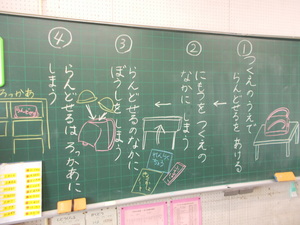 ①
つくえのうえで
らんどせるを あける
②
にもつを つくえの
なかに しまう
③
らんどせるのなかに
ぼうしを しまう
④
らんどせるは ろっかあに
しまう
ろっかあ